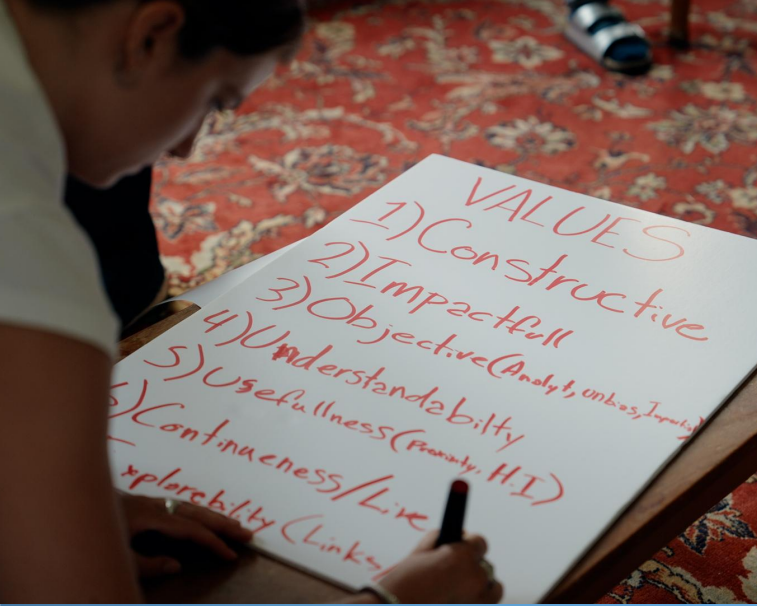 VALUES
1) Constructive
2) Impactfull
3) Objective (Analyt, unbias, Impartial)
4) Understandabilty
5) Usefullness (Proximity, H.I)
6) Continueness/Live
xplorebility (Links,